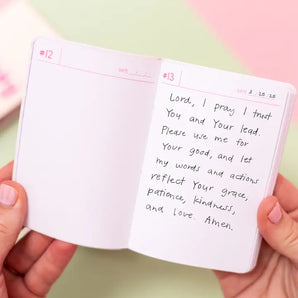 #12
#13
Lord, I pray I trust
You and Your lead.
Please use me for
Your good, and let
my words and actions
reflect Your grace,
patience, kindness,
and love. Amen.